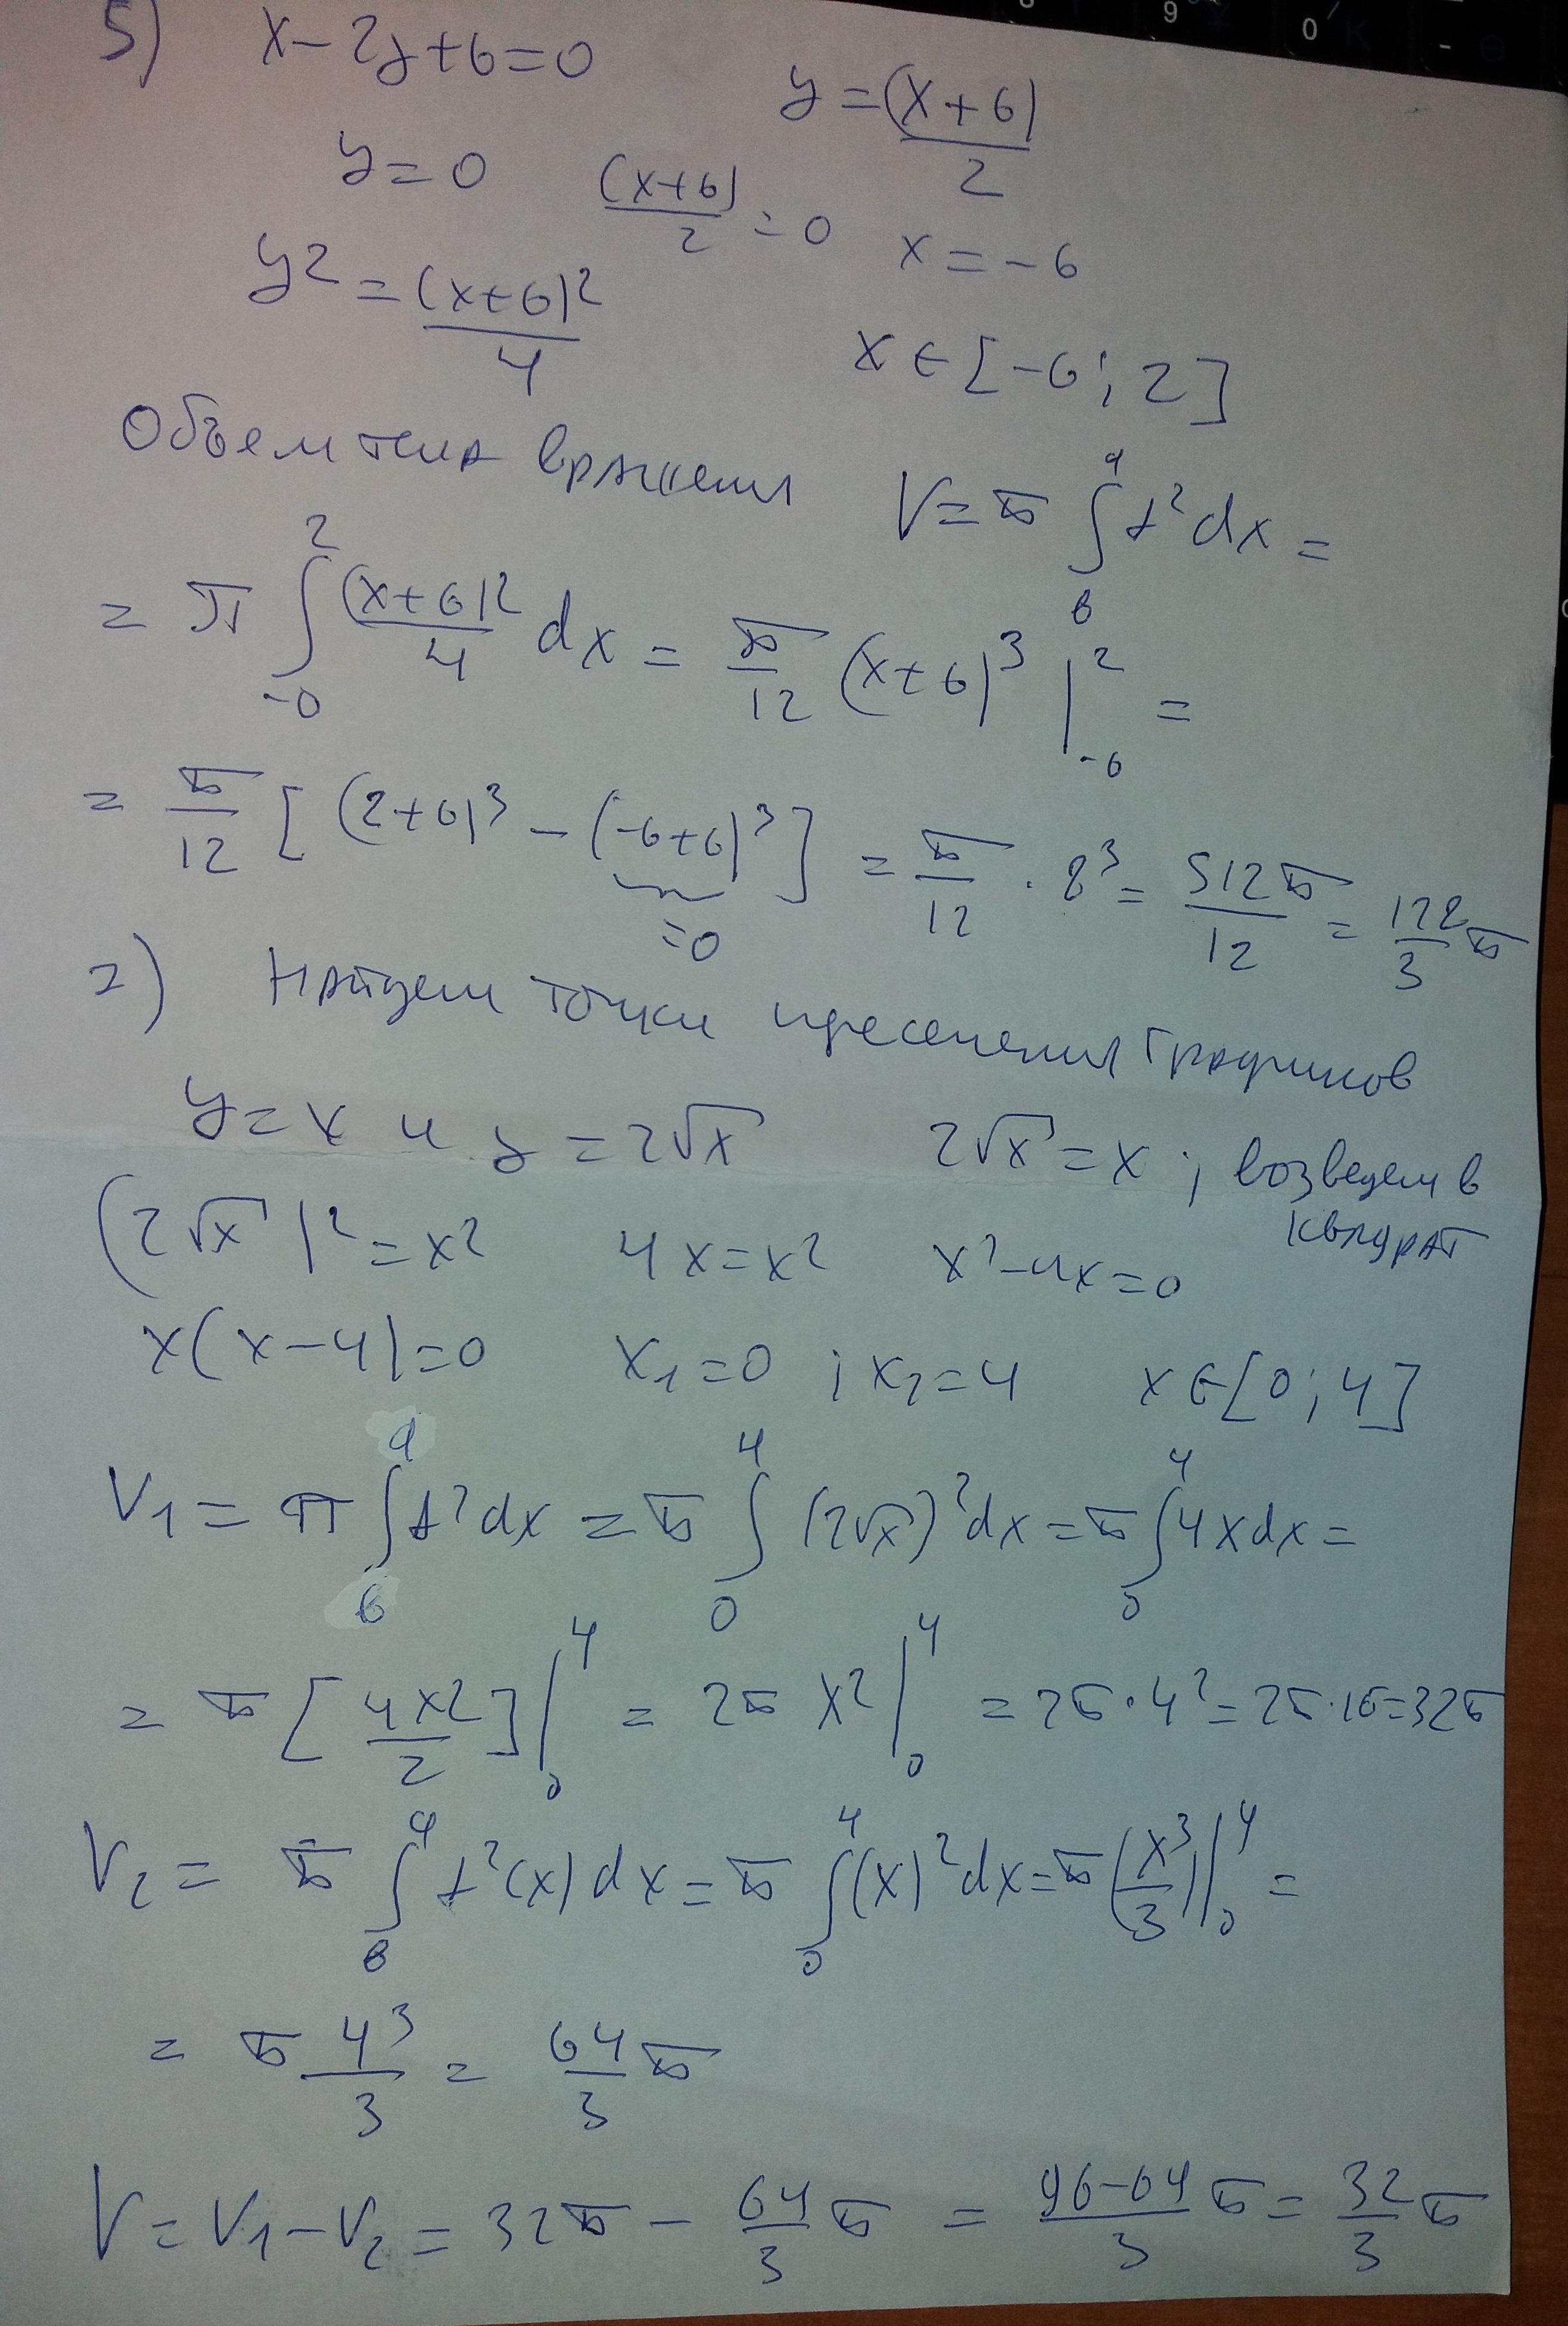 5) x-2y+6=0
y=(x+6)/2
y=0 (x+6)/2=0 x=-6
y2=(x+6)2/4
x∈[-6;2]
Объем тела вращения V=π∫ₐᵇ f²dx=
=π∫₋₀² (x+6)2/4 dx = π/12 (x+6)³|₋₆² =
=π/12 [(2+6)³-(-6+6)³] = π/12 · 8³ = 512π/12 = 128/3 π
=0
2) Найдем точки пресечения графиков
y=x и y=2√x 2√x=x; возведем в квадрат
(2√x)²=x2 4x=x2 x²-4x=0
x(x-4)=0 x₁=0; x₂=4 x∈[0;4]
V₁=π∫ f²dx=π∫₀⁴(2√x)²dx=π∫₀⁴4xdx=
=π[4x2/2]|₀⁴=2πx2|₀⁴=2π·4²=2π·16=32π
V₂=π∫ f²(x)dx=π∫₀⁴(x)²dx=π(x³/3)|₀⁴=
=π 4³/3=64/3 π
V=V₁-V₂=32π-64/3 π=96-64/3 π=32/3 π